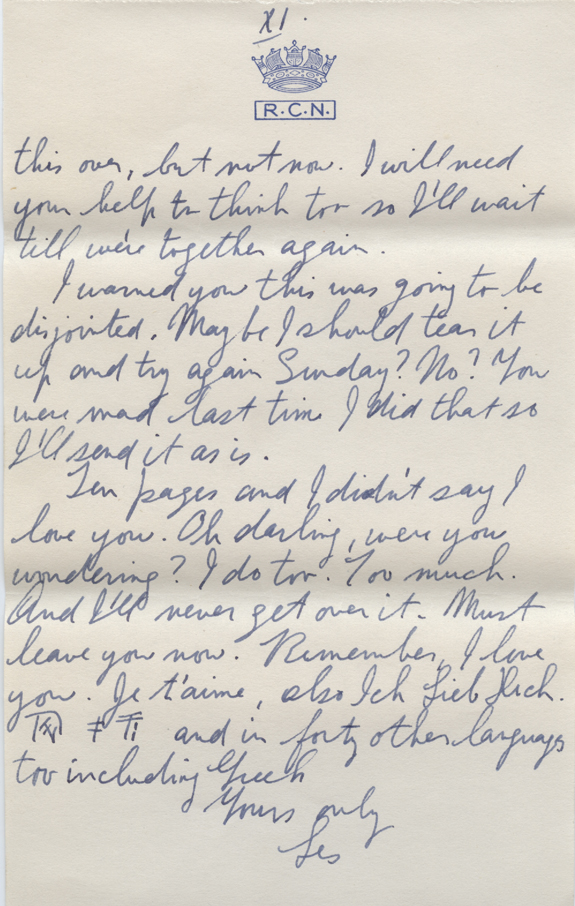 XI.
R.C.N.
this over, but not now. I will need
your help to think too so I'll wait
till we're together again.
I warned you this was going to be
disjointed. Maybe I should tear it
up and try again Sunday? No? You
were mad last time I did that so
I'll send it as is.
Ten pages and I didn't say I
love you. Oh darling, were you
wondering? I do too. Too much.
And I'll never get over it. Must
leave you now. Remember, I love
you. Je t'aime, also Ich Lieb Dich.
and in forty other languages
too including Greek
Yours only
Les